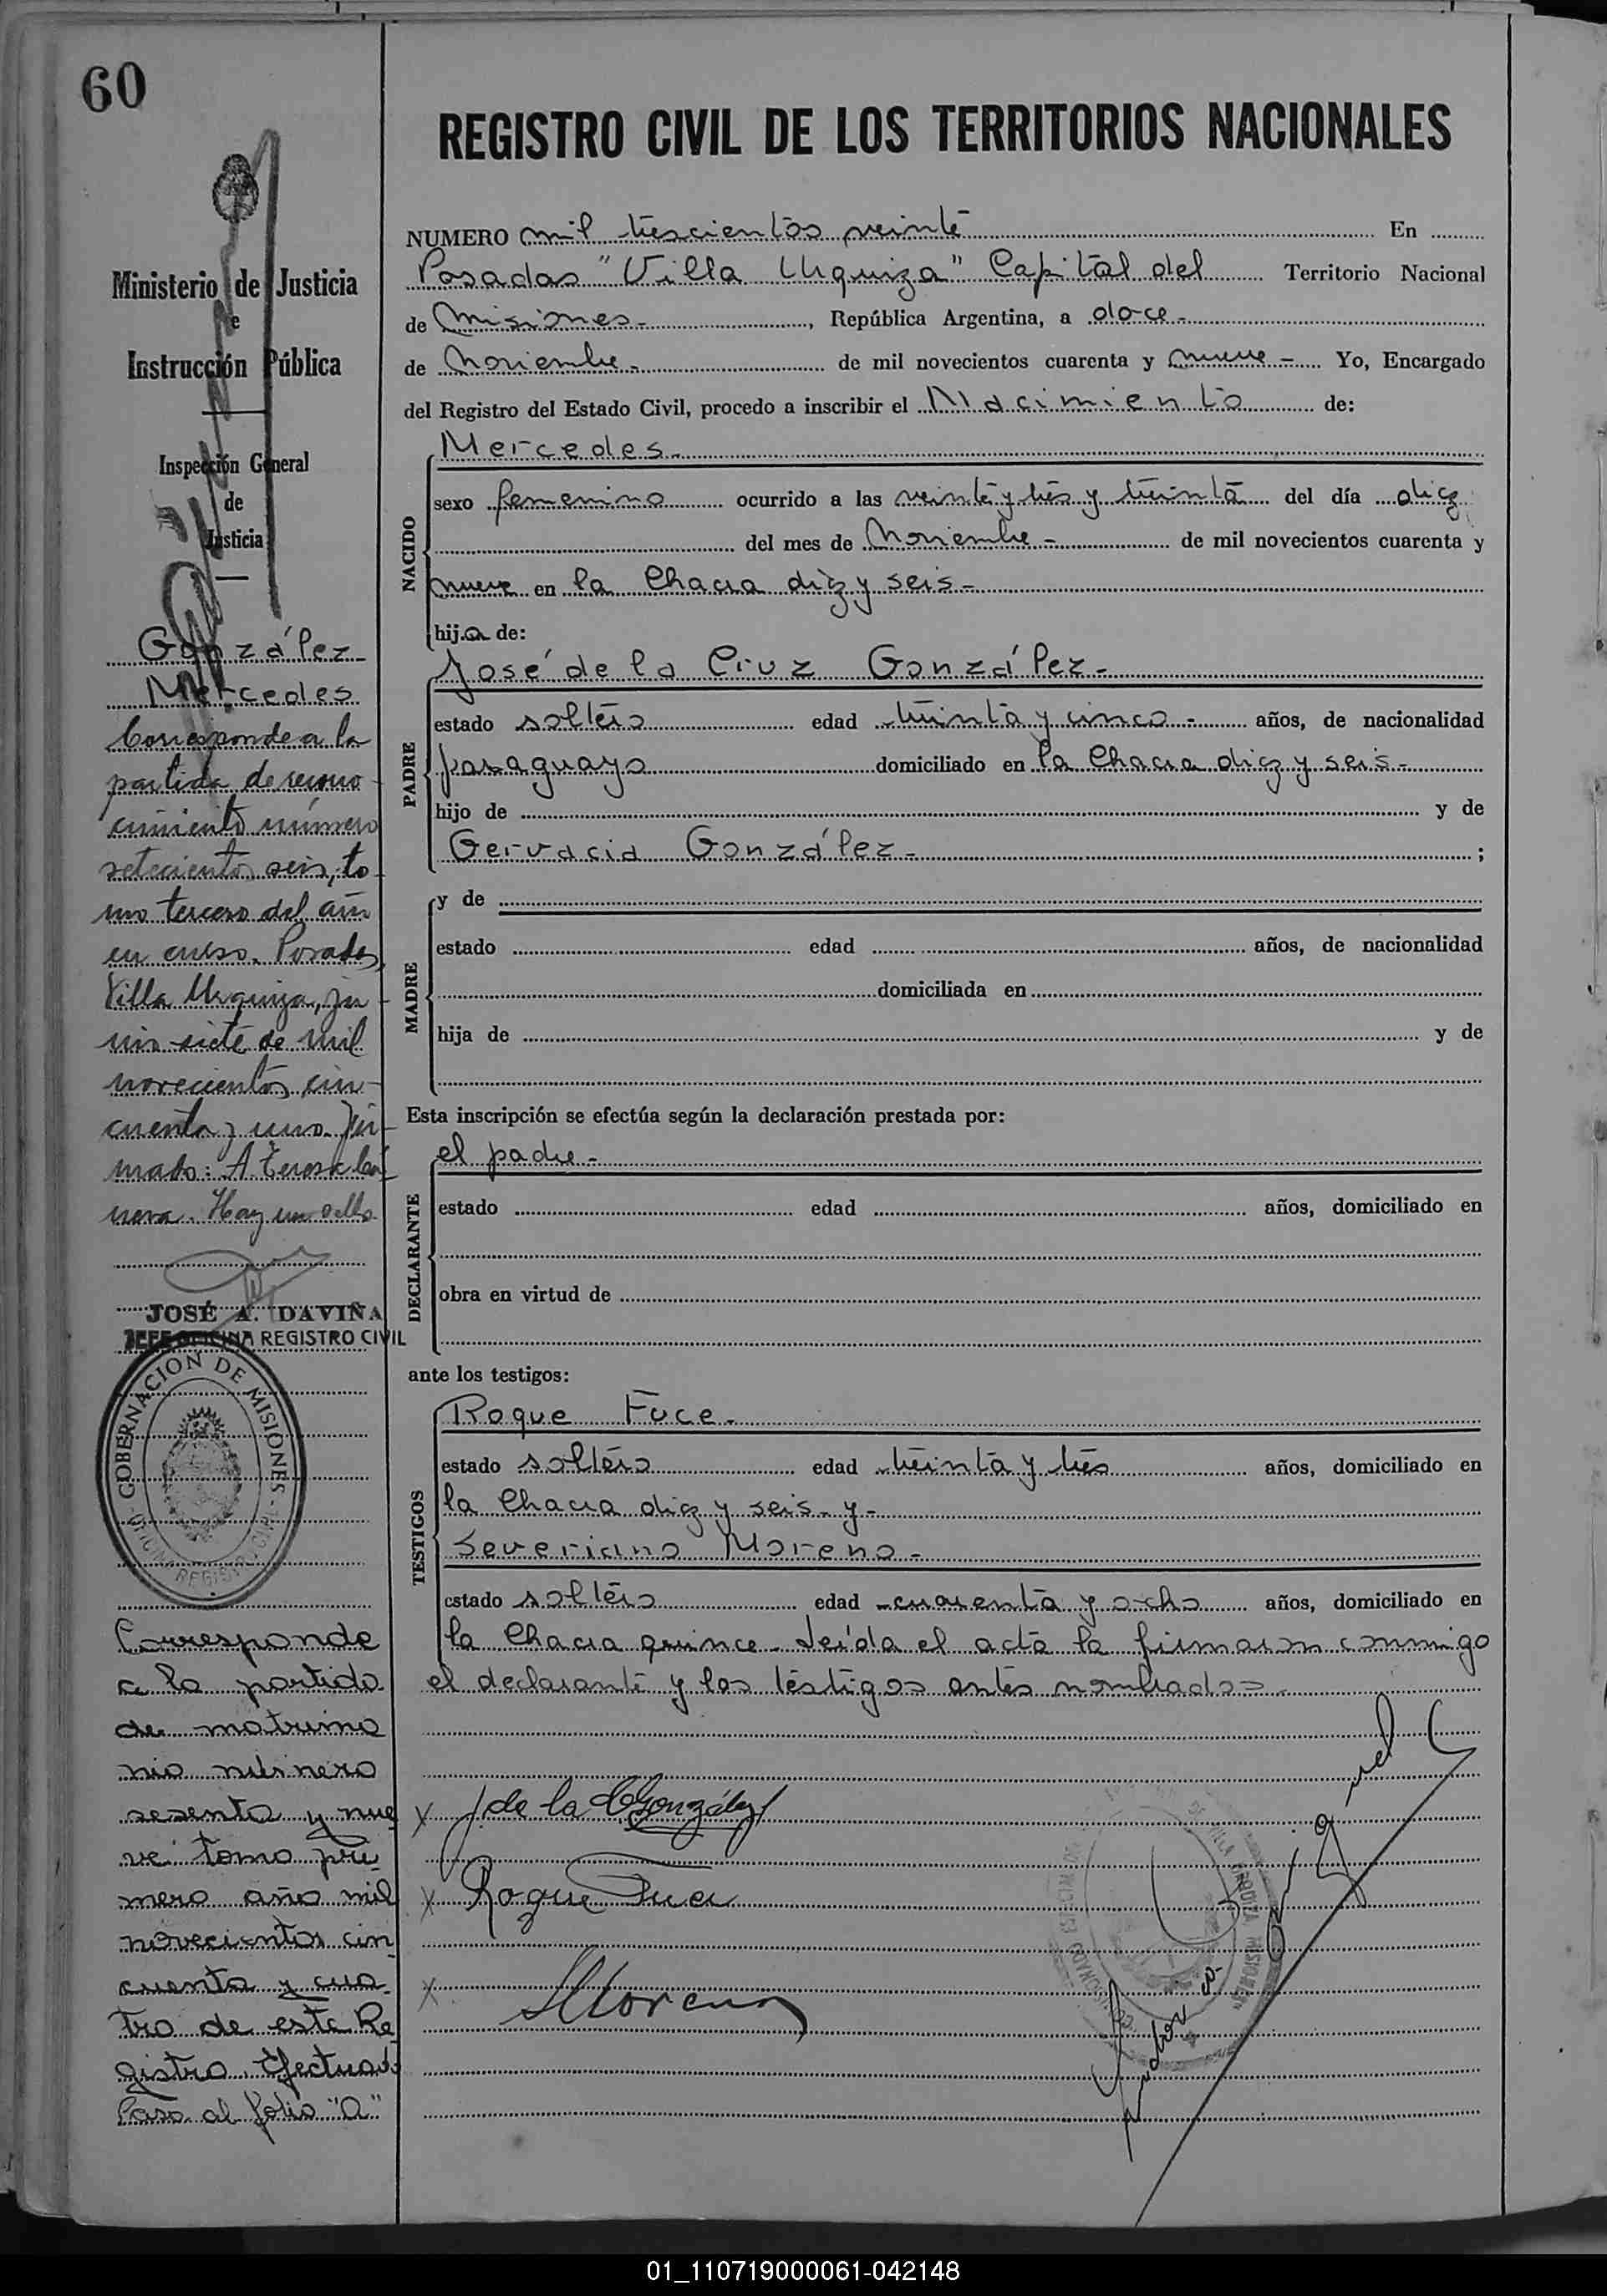 60
REGISTRO CIVIL DE LOS TERRITORIOS NACIONALES
Ministerio de Justicia
e
Instrucción Pública
Inspección General
de
Justicia
González
Mercedes
Corresponde a la
partida de recono-
cimiento número
setecientos seis, to-
mo tercero del año
en curso. Posadas,
Villa Urquiza, ju-
nio siete de mil
novecientos cin-
cuenta y uno. Fir-
mado: A. Teresa
Hay un sello
JOSÉ A. DAVIÑA
JEFE OFICINA REGISTRO CIVIL
GOBERNACION DE MISIONES
OFICINA REGISTRO CIVIL
Corresponde
a la partida
de matrimo
nio número
sesenta y nue
ve tomo pri
mero año mil
novecientos cin
cuenta y cua
tro de este Re
gistro. Efectuado
Pasa al folio "A"
NUMERO mil trescientos veinte En
Posadas "Villa Urquiza" Capital del Territorio Nacional
de Misiones-, República Argentina, a doce-
de Noviembre- de mil novecientos cuarenta y nueve- Yo, Encargado
del Registro del Estado Civil, procedo a inscribir el Nacimiento de:
NACIDO
Mercedes-
sexo femenino ocurrido a las veinte y tres y treinta del día diez
del mes de Noviembre- de mil novecientos cuarenta y
nueve en la Chacra diez y seis-
hija de:
PADRE
José de la Cruz González-
estado soltero edad treinta y cinco- años, de nacionalidad
paraguayo domiciliado en la Chacra diez y seis-
hijo de y de
Gervacia González- ;
MADRE
y de
estado edad años, de nacionalidad
domiciliada en
hija de y de
Esta inscripción se efectúa según la declaración prestada por:
DECLARANTE
el padre-
estado edad años, domiciliado en
obra en virtud de
ante los testigos:
TESTIGOS
Roque Fuce-
estado soltero edad treinta y tres años, domiciliado en
la Chacra diez y seis- y-
Severiano Moreno-
estado soltero edad -cuarenta y ocho años, domiciliado en
la Chacra quince- Leída el acta la firmaron conmigo
el declarante y los testigos antes nombrados=
X J de la C González
X Roque Fuce
X SMoreno
01_110719000061-042148